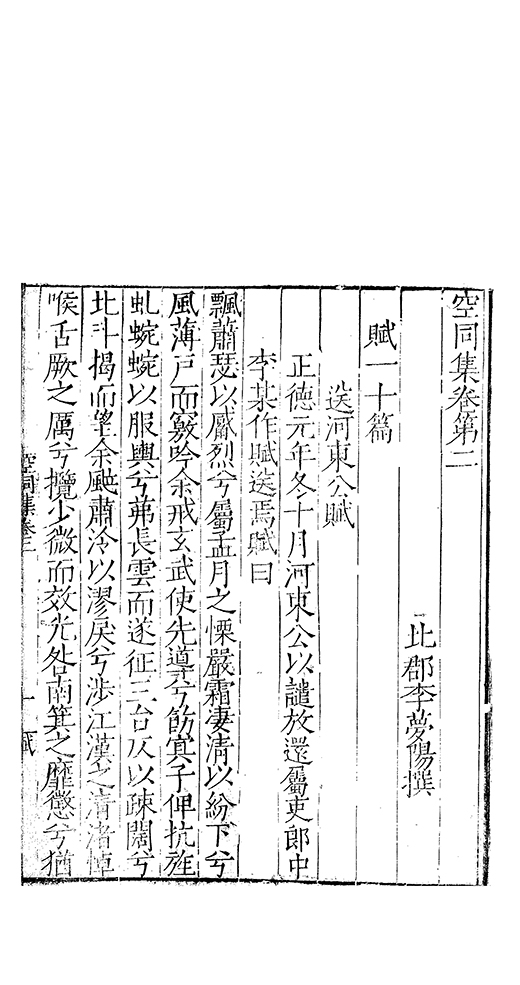 空同集卷第二
北郡李夢陽撰
賦一十篇
送河東公賦
正德元年冬十月河東公以譴放還屬吏郎中
李某作賦送焉賦曰
飄蕭瑟以威烈兮屬孟月之慄嚴霜凄清以紛下兮
風薄戶而竅吟余戒玄武使先導兮飭寘子俾抗旌
虬蜿蜿以服輿兮茀長雲而遂征三台仄以疎闊兮
北斗揭而望余颷肅泠以漻戾兮涉江漢之清渚悼
喉舌厥之厲兮攬少微而效光咎南箕之靡懲兮猶
空同集卷二
一
賦